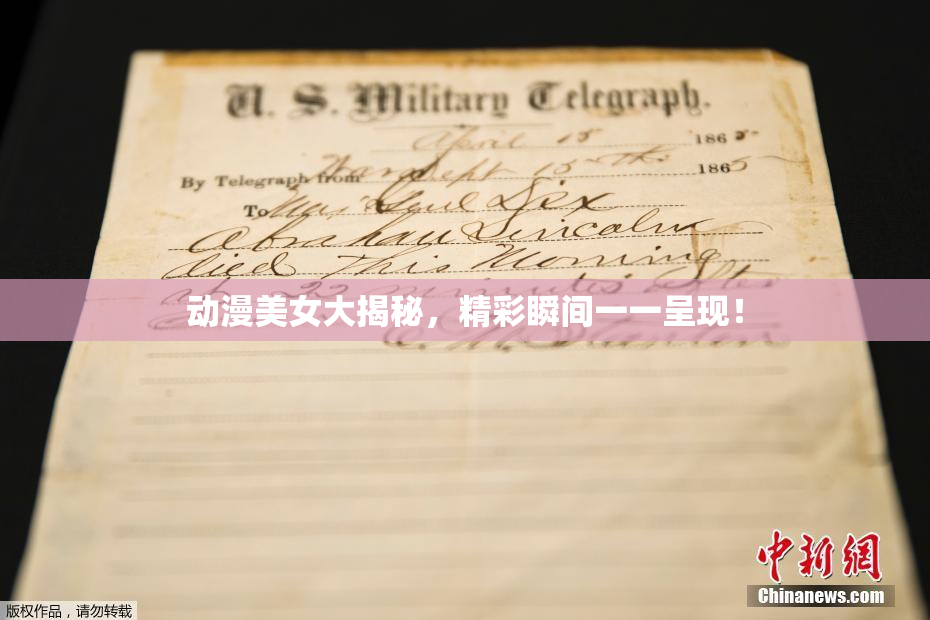 U. S. Military Telegraph.
April 15 1865
By Telegraph from War Dept 15th 1865
To Maj Genl Dix
Abraham Lincoln
died This Morning
at 22 minutes after
动漫美女大揭秘，精彩瞬间一一呈现！
E. M. Stanton
中新网
Chinanews.com
版权作品，请勿转载